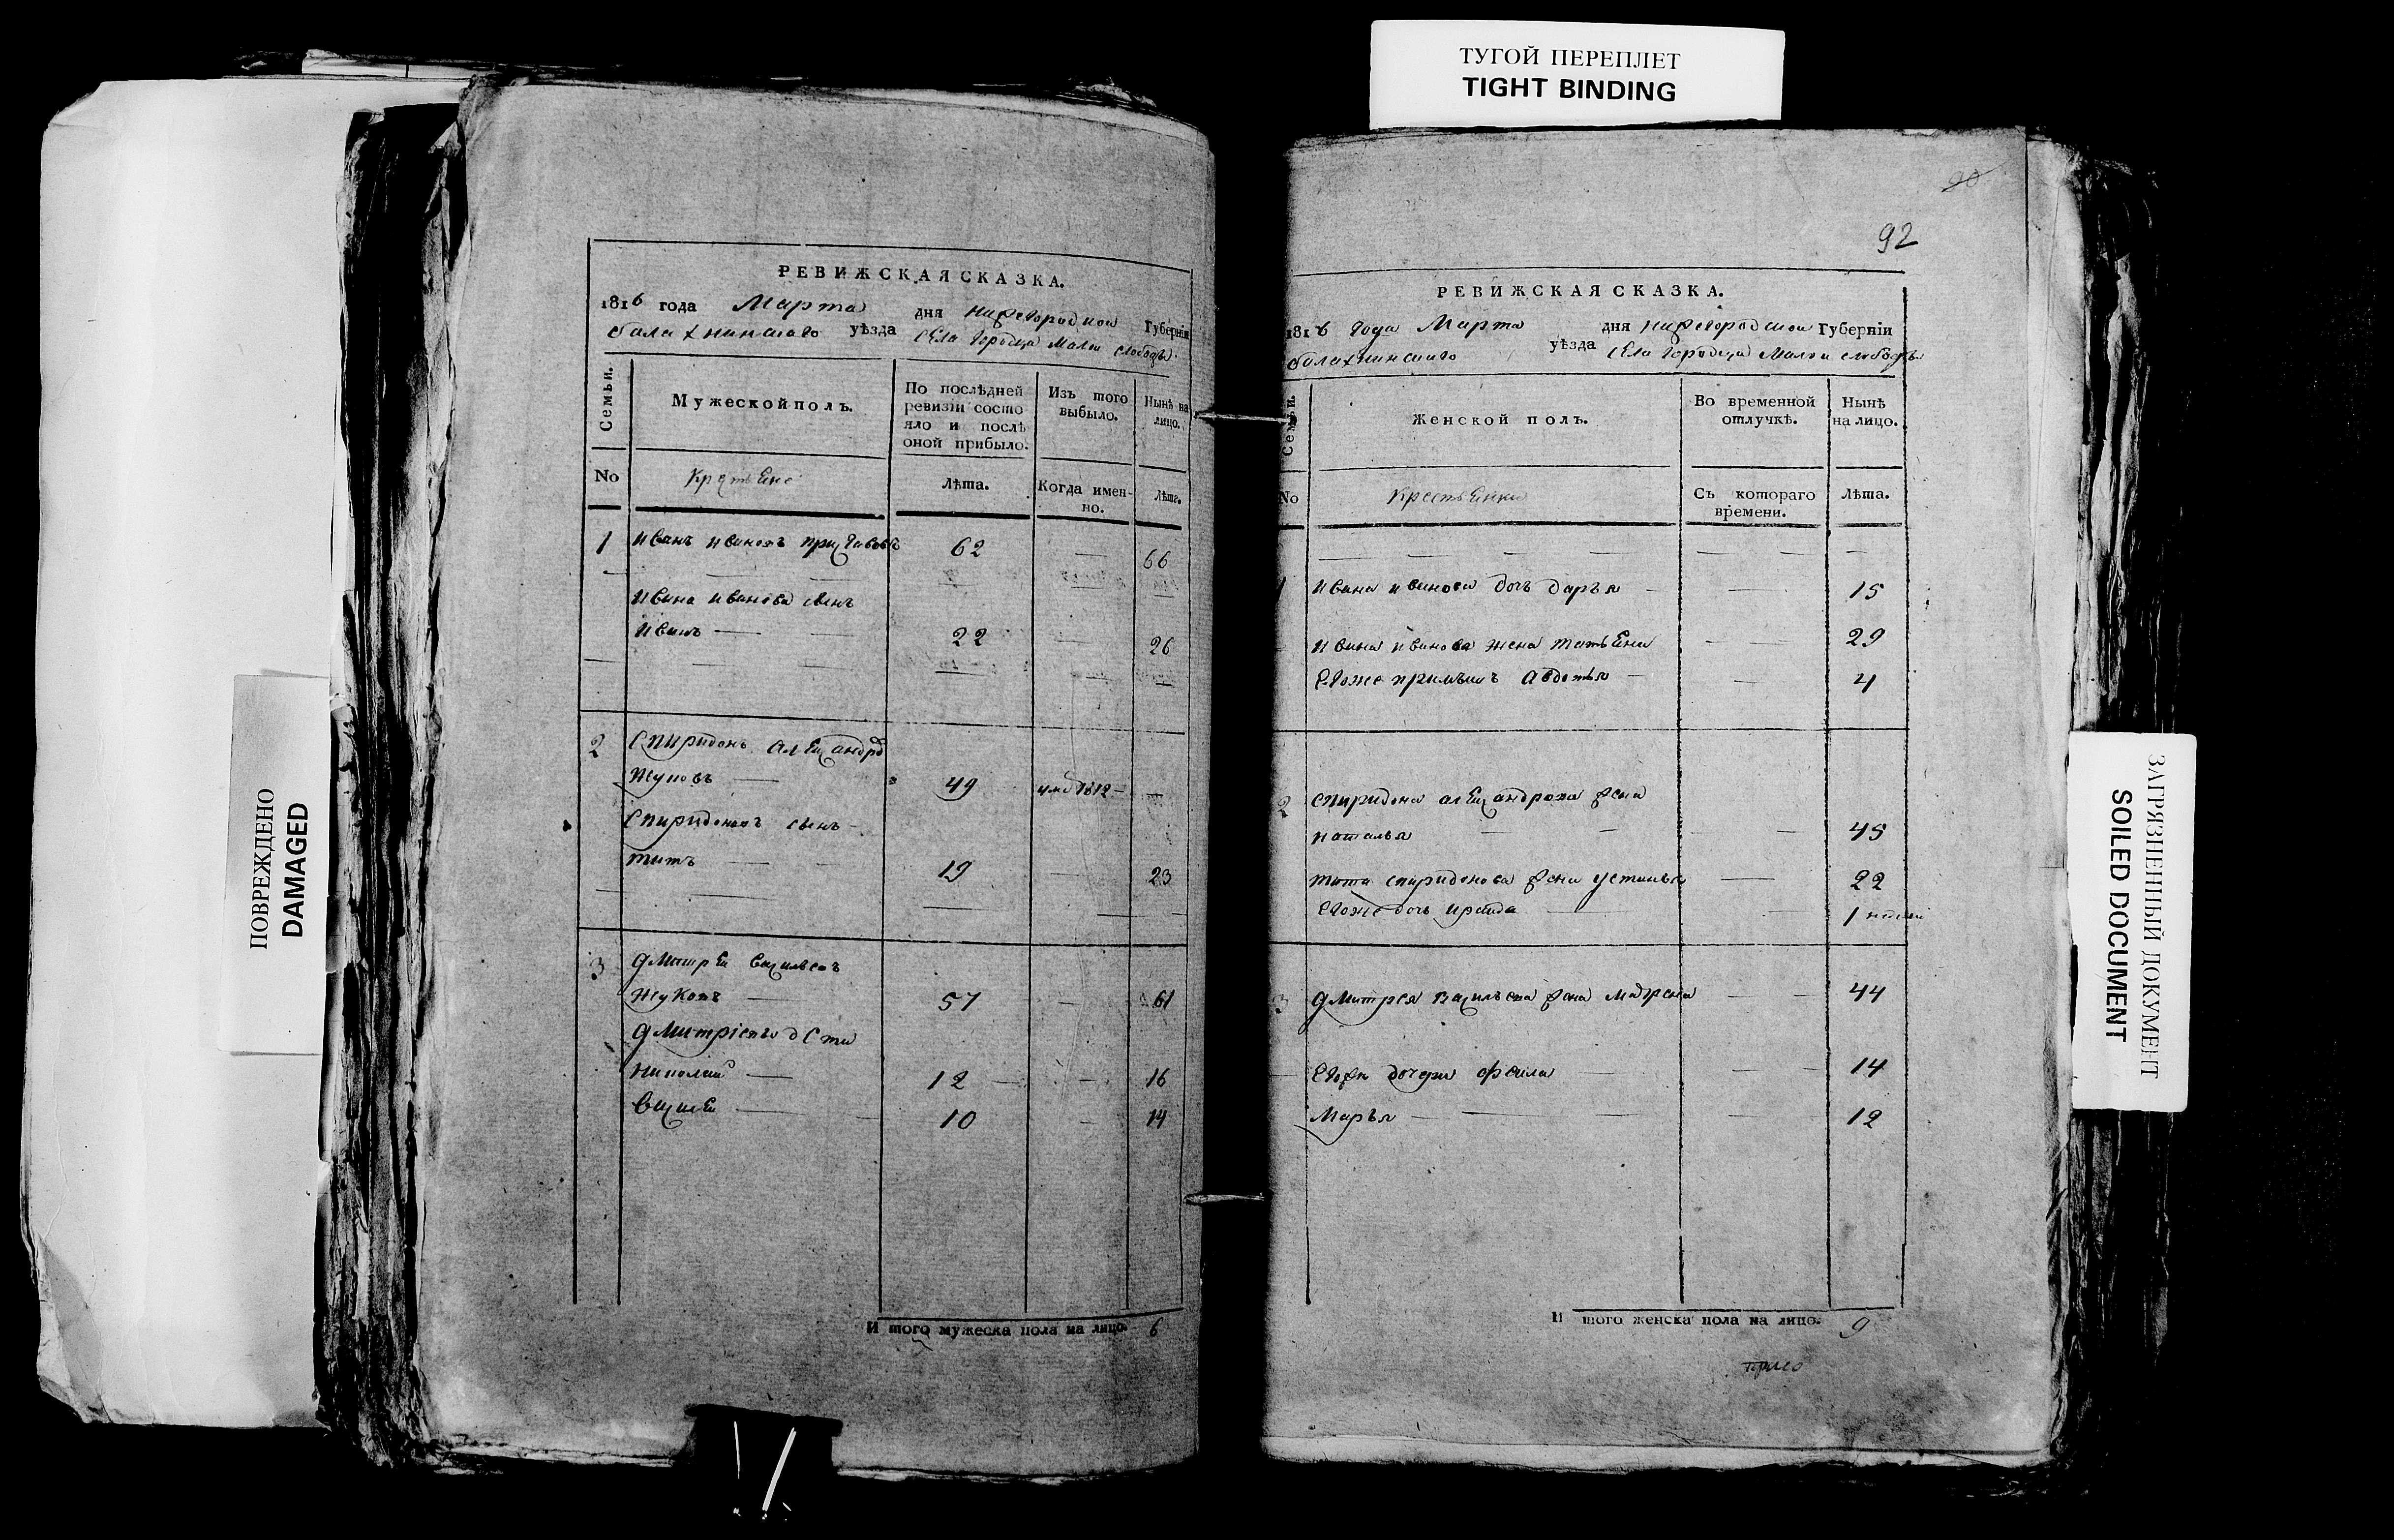 ТУГОЙ ПЕРЕПЛЕТ
TIGHT BINDING
ПОВРЕЖДЕНО
DAMAGED
РЕВИЖСКАЯ СКАЗКА.
1816 года Марта дня нижегородской Губерніи
балахнинскаго уѣзда села городца малой слободы
Семьи.
Мужеской полъ.
По послѣдней
ревизіи состо
яло и послѣ
оной прибыло.
Изъ того
выбыло.
Нынѣ на
лицо.
No
Крестьене
Лѣта.
Когда имен-
но.
Лѣта.
1 иванъ ивановъ 62 — 66
ивана иванова сынъ
иванъ — 22 26
2 Спиридонъ александров
Жуковъ — 49 умре 1812 —
Спиридоновъ сынъ —
титъ — 19 — 23
3 Дмитрей васильевъ
Жуковъ — 57 — 61
Дмитріевы дети
николай — 12 — 16
василей — 10 — 14
И того мужеска пола на лицо. 6
90
92
РЕВИЖСКАЯ СКАЗКА.
1816 года Марта дня нижегородской Губерніи
балахнинскаго уѣзда села городца малой слободы
Семьи.
Женской полъ.
Во временной
отлучкѣ.
Нынѣ
на лицо.
No
Крестьенки
Съ котораго
времени.
Лѣта.
1 ивана иванова дочь дарья — — 15
ивана иванова жена татьена — 29
Егоже авдотья — — 4
2 спиридона александрова жена
наталья — — 45
тита спиридонова жена устинья — 22
Егоже дочь — 1
3 Дмитрея васильева жена матрена — 44
Егожъ дочери — 14
Марья — — 12
И того женска пола на лицо. 9
ЗАГРЯЗНЕННЫЙ ДОКУМЕНТ
SOILED DOCUMENT